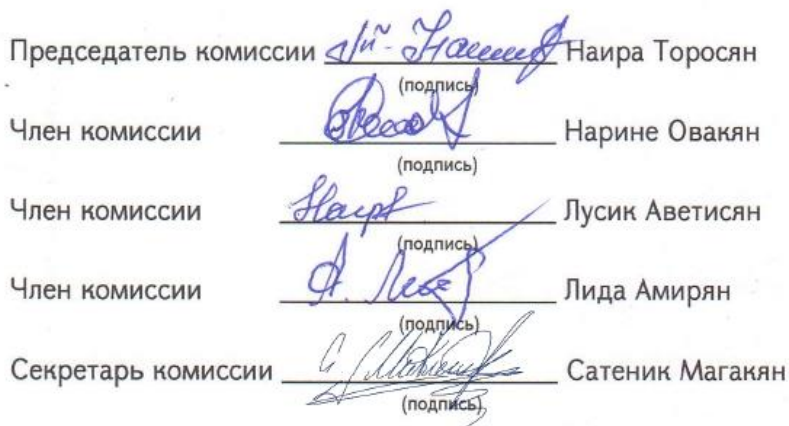 Председатель комиссии Наира Торосян
(подпись)
Член комиссии Нарине Овакян
(подпись)
Член комиссии Лусик Аветисян
(подпись)
Член комиссии Лида Амирян
(подпись)
Секретарь комиссии Сатеник Магакян
(подпись)